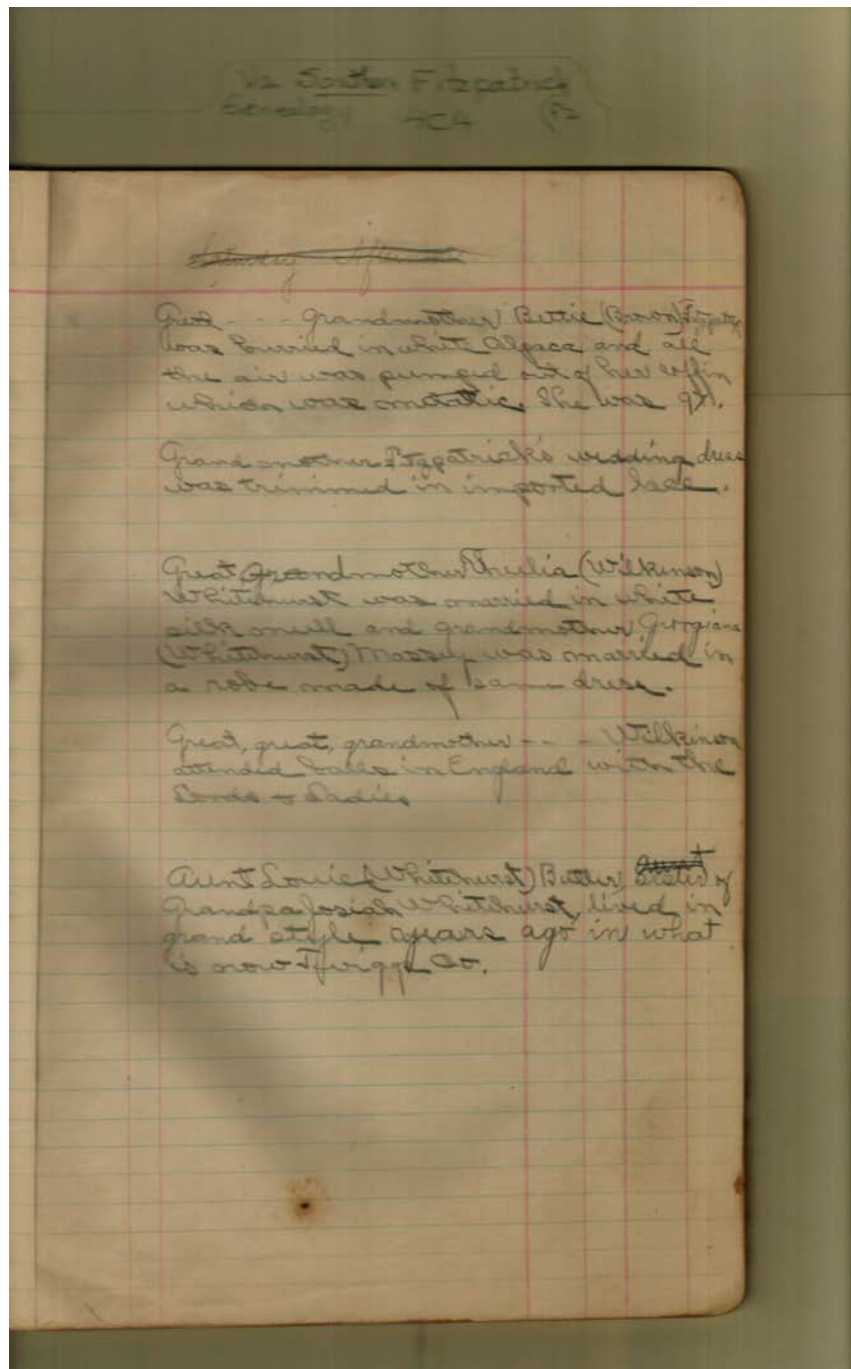 Va Southern Fitzpatrick
Genealogy 4CA
Saturday Afternoon
Great - - - Grandmother Bettie (Brown) Fitzpatrick
was burried in white Alpaca and all
the air was pumped out of her coffin
which was metalic. She was
Grandmother Fitzpatrick's wedding dress
was trimmed in imported lace.
Great Grandmother (Wilkinson)
Whitehurst was married in white
silk mull and grandmother Georgiana
(Whitehurst) Massey was married in
a robe made of same dress.
Great, great, grandmother - - - Wilkinson
attended balls in England with the
Lords & Ladies
Aunt Louie (Whitehurst) Butler, aunt sister of
Grandpa Josiah Whitehurst, lived in
grand style years ago in what
is now Twiggs Co.